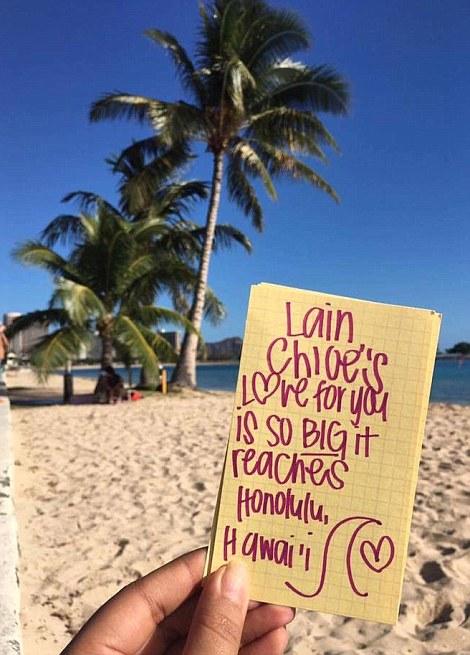 Lain
Chloe's
Love for you
is so BIG it
reaches
Honolulu,
Hawai'i